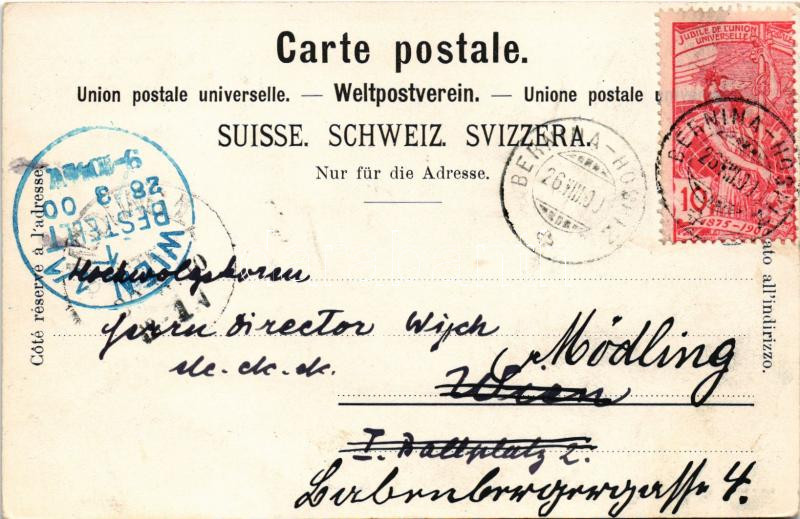 Carte postale.
Union postale universelle. — Weltpostverein. — Unione postale u
SUISSE. SCHWEIZ. SVIZZERA.
Nur für die Adresse.
Côté réservé à l'adresse.
ato all'indirizzo.
JUBILÉ DE L'UNION
UNIVERSELLE
10
1875-19
BERNINA-HOSPIZ
26.VIII.00
BERNINA-HOSPIZ
26.VIII.00
WIEN
1/1
BESTELLT
28 8
00
Hochwolgeboren
Herrn Director Wisch
etc. etc. etc.
Mödling
Wien
I. Ballplatz 2.
Babenbergergasse 4.